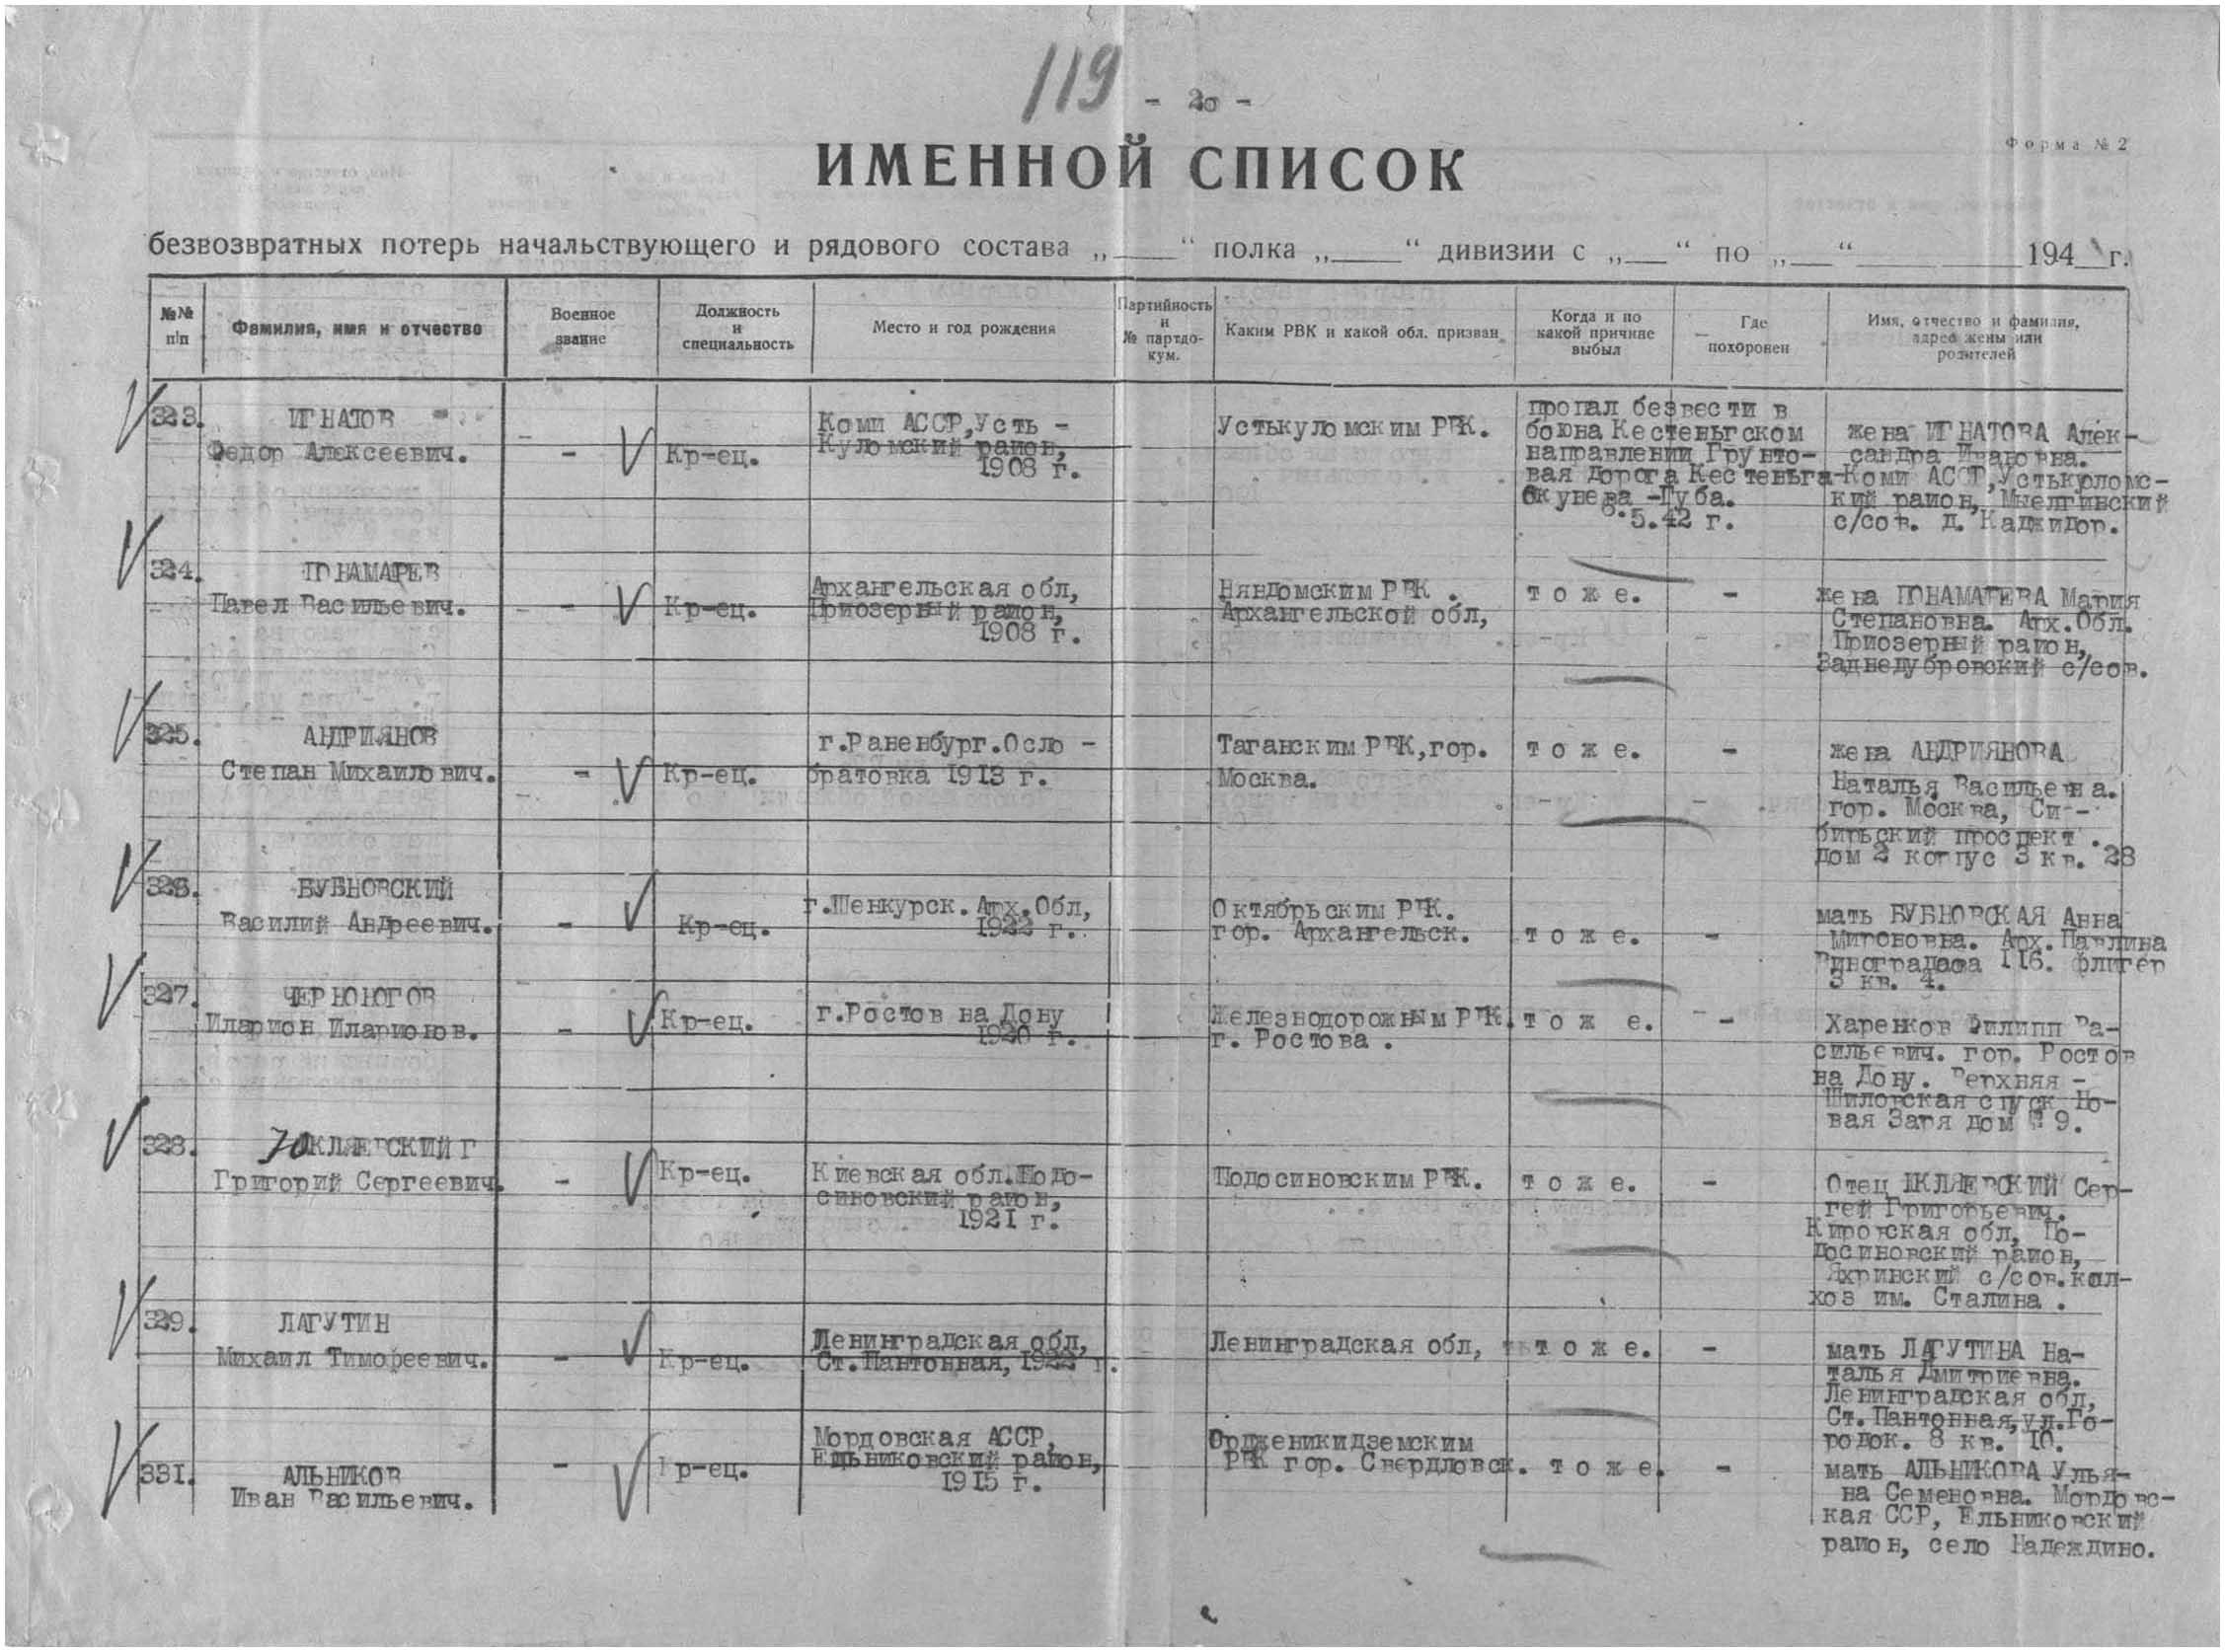 119 - 20 -
Форма № 2
ИМЕННОЙ СПИСОК
безвозвратных потерь начальствующего и рядового состава „____“ полка „____“ дивизии с „___“ по „___“ 194__г.
№№ п/п
Фамилия, имя и отчество
Военное звание
Должность и специальность
Место и год рождения
Партийность и № партдо-кум.
Каким РВК и какой обл. призван
Когда и по какой причине выбыл
Где похоронен
Имя, отчество и фамилия, адрес жены или родителей
323.
ИГНАТОВ
Федор Алексеевич.
-
Кр-ец.
Коми АССР,Усть -
Куломский район,
1908 г.
Устькуломским РВК.
пропал безвести в
боюна Кестеньгском
направлении Грунто-
вая дорога Кестеньга-
Окунева -Губа.
6.5.42 г.
жена ИГНАТОВА Алек-
сандра Ивановна.
Коми АССР,Устькуломс-
кий район, Мыелгинский
с/сов. д. Каджидор.
324.
ПОНАМАРЕВ
Павел Васильевич.
-
Кр-ец.
Архангельская обл,
Приозерный район,
1908 г.
Няндомским РВК .
Архангельской обл,
т о ж е.
-
жена ПОНАМАРЕВА Мария
Степановна. Арх.Обл.
Приозерный район,
Заднедубровский с/сов.
325.
АНДРИЯНОВ
Степан Михаилович.
-
Кр-ец.
г.Раненбург.Осло -
братовка 1913 г.
Таганским РВК,гор.
Москва.
т о ж е.
-
жена АНДРИЯНОВА
Наталья Васильевна.
гор. Москва, Си--
бирьский проспект .
дом 2 корпус 3 кв. 28
326.
БУБНОВСКИЙ
Василий Андреевич.
-
Кр-ец.
г.Шенкурск. Арх.Обл,
1922 г.
Октябрьским РВК.
гор. Архангельск.
т о ж е.
-
мать БУБНОВСКАЯ Анна
Мироновна. Арх. Павлина
Виноградова 116. флигер
3 кв. 4.
327.
ЧЕРНОЮГОВ
Иларион Иларионов.
-
Кр-ец.
г.Ростов на Дону
1920 г.
Железнодорожным РВК.
г. Ростова .
т о ж е.
-
Харенков Филипп Ва-
сильевич. гор. Ростов
на Дону. Верхняя -
Шиловская спуск Но-
вая Заря дом 9.
328.
КЛЯЕВСКИЙ Г
Григорий Сергеевич.
-
Кр-ец.
Киевская обл.Подо-
синовский район,
1921 г.
Подосиновским РВК.
т о ж е.
-
Отец ШКЛЯЕВСКИЙ Сер-
гей Григорьевич.
Кировская обл, По-
досиновский район,
Яхринский с/сов.кол-
хоз им. Сталина .
329.
ЛАГУТИН
Михаил Тимофеевич.
-
Кр-ец.
Ленинградская обл,
Ст.Пантонная, 1922 г.
Ленинградская обл,
т о ж е.
-
мать ЛАГУТИНА На-
талья Дмитриевна.
Ленинградская обл,
Ст.Пантонная,ул.Го-
родок. 8 кв. 10.
331.
АЛЬНИКОВ
Иван Васильевич.
-
Кр-ец.
Мордовская АССР,
Ельниковский район,
1915 г.
Ордженикидземским
РВК гор. Свердловск.
т о ж е.
-
мать АЛЬНИКОВА Улья-
на Семеновна. Мордовс-
кая ССР, Ельниковский
район, село Надеждино.